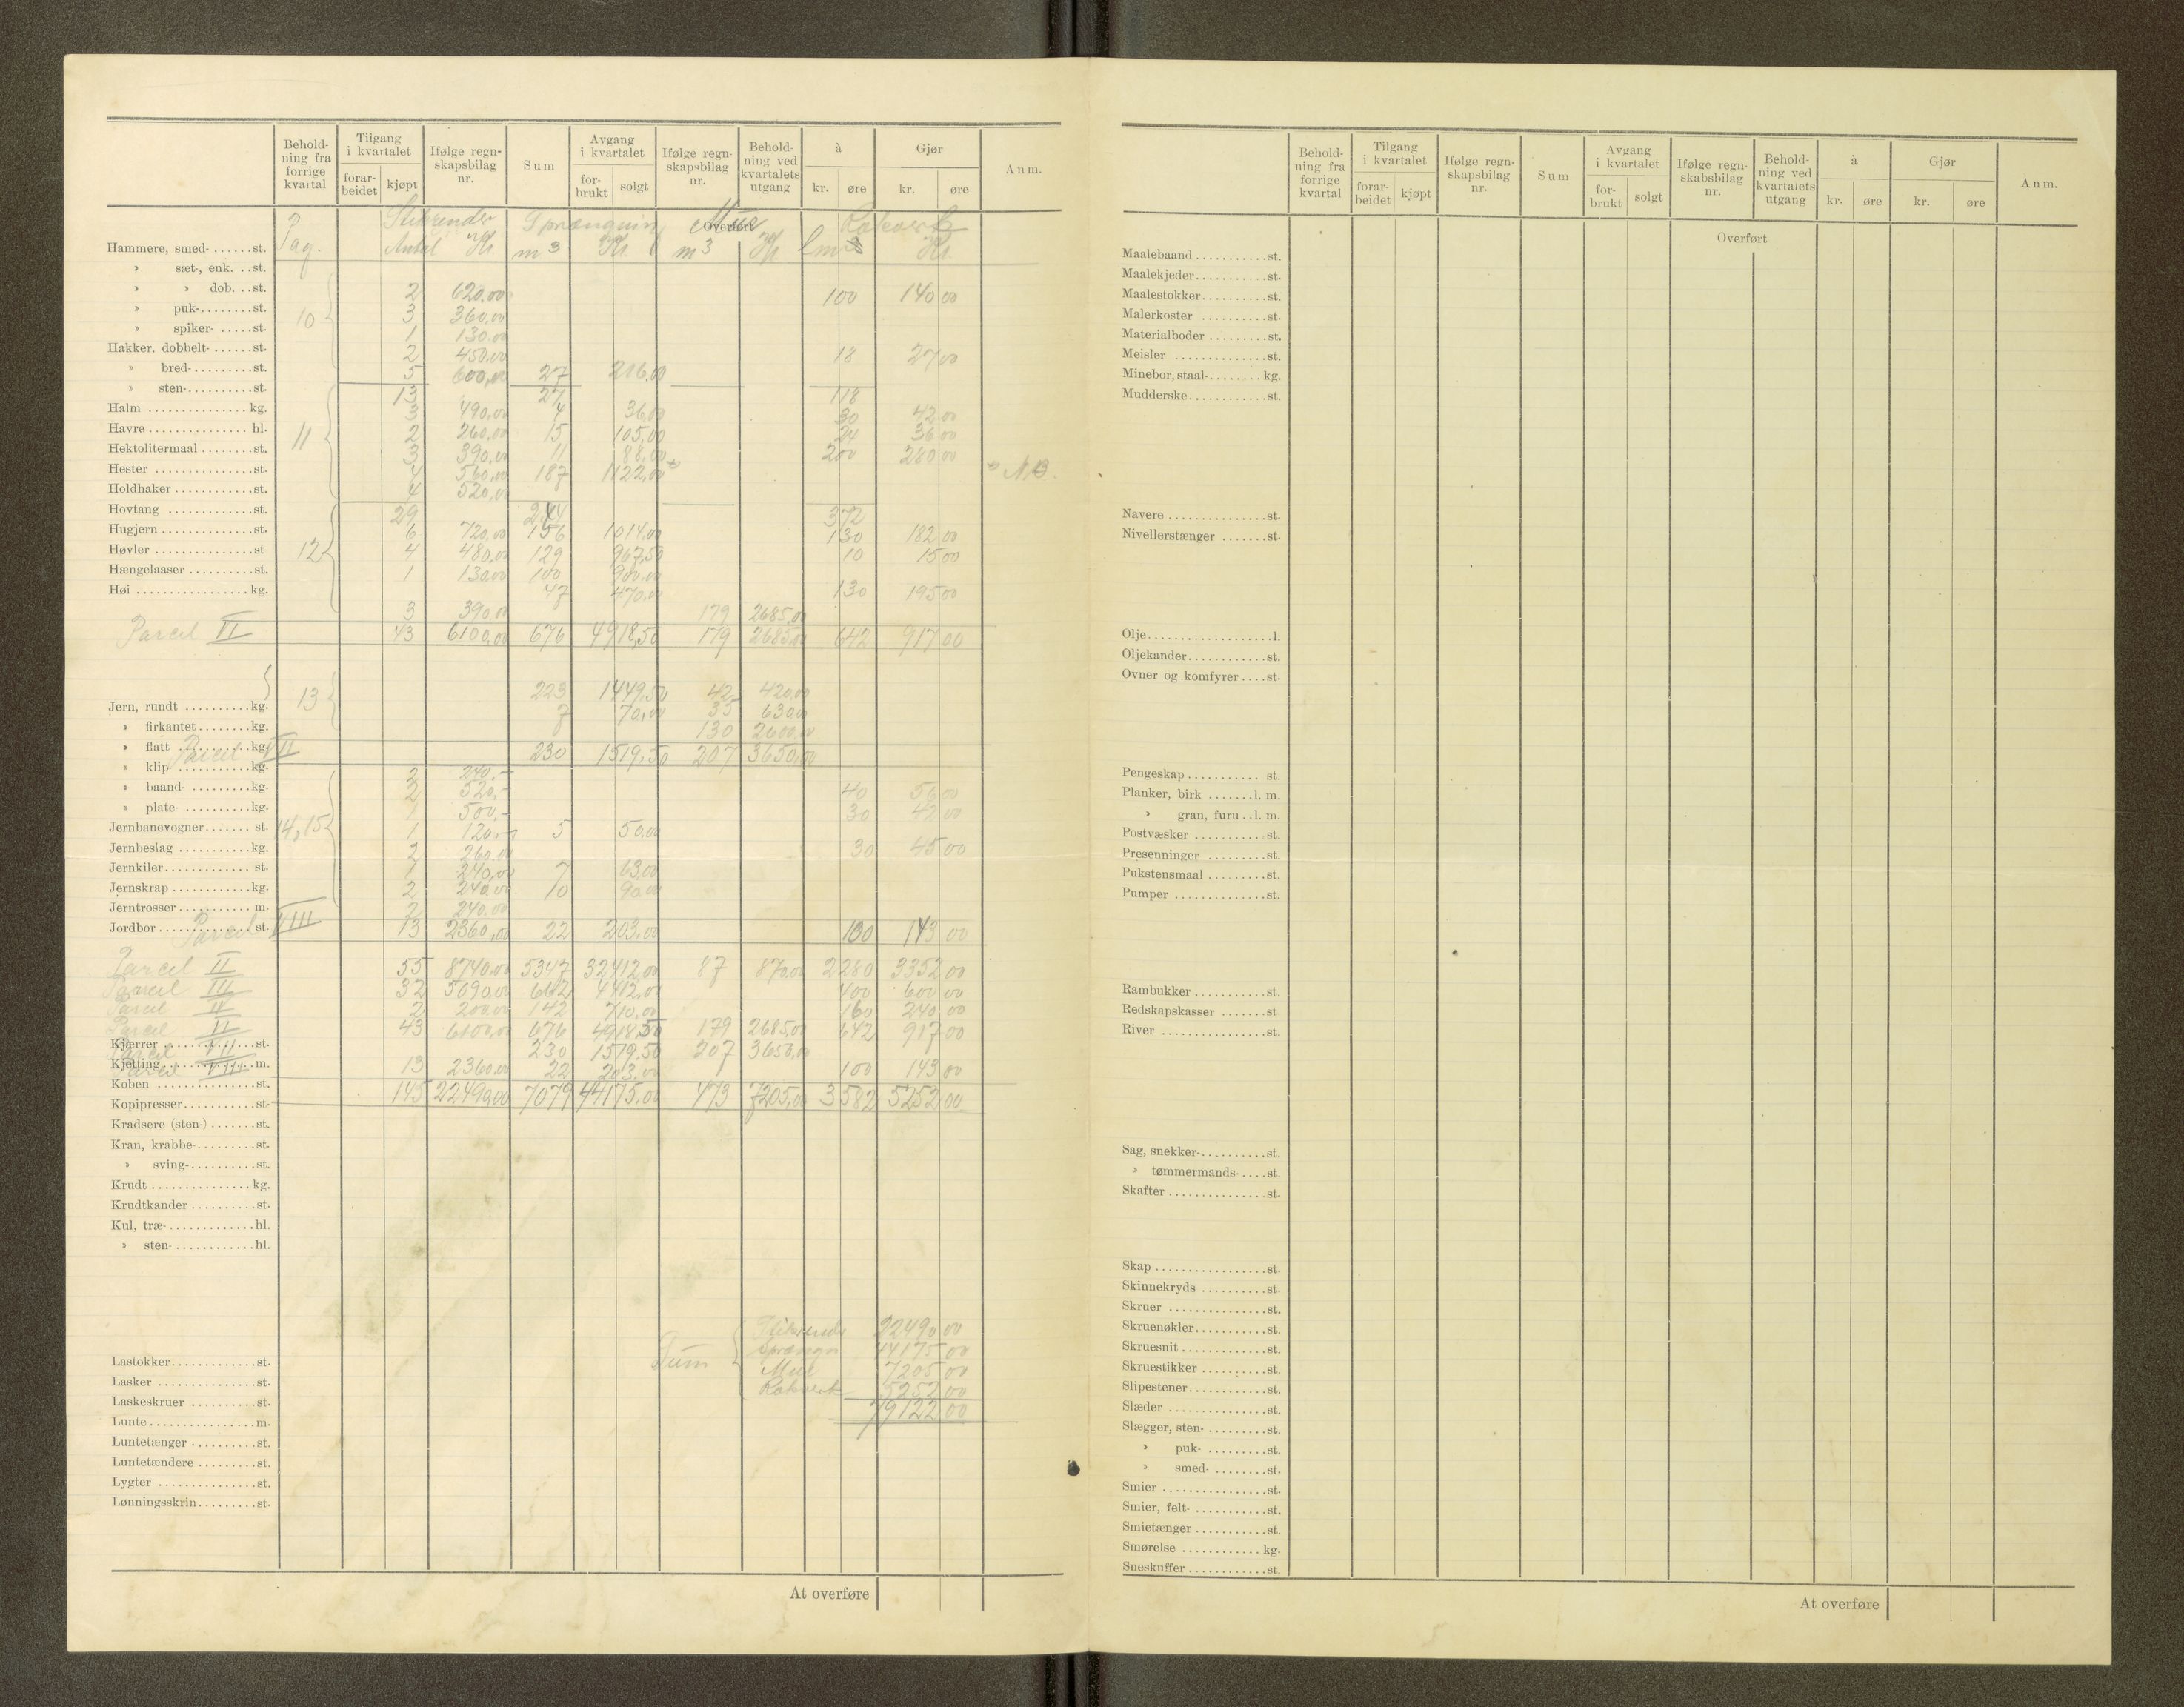 Beholdning fra forrige kvartal | Tilgang i kvartalet: forarbeidet, kjøpt | Ifølge regnskapsbilag nr. | Sum | Avgang i kvartalet: forbrukt, solgt | Ifølge regnskapsbilag nr. | Beholdning ved kvartalets utgang | à kr. øre | Gjør kr. øre | Anm.
Stikrender Sprængning Mur Rækverk
Overført
Pag. Antal Kr m3 Kr m3 Kr lm Kr
Hammere, smed- ...... st.
» sæt-, enk. .. st.
» » dob. .. st. 2 620.00 100 140 00
» puk- ........ st. 10 3 360.00
» spiker- ..... st. 1 130.00
Hakker, dobbelt- ...... st. 2 450.00 18 27 00
» bred- ......... st. 5 600,00 27 216.00
» sten- .......... st. 13 27 118
Halm ............... kg. 3 490,00 4 36,00 30 42 00
Havre ............... hl. 11 2 260.00 15 105,00 24 36 00
Hektolitermaal ........ st. 3 390,00 11 88,00 200 280 00
Hester .............. st. 4 560,00 187 1122,00 N.B.
Holdhaker ............ st. 4 520,00
Hovtang ............. st. 29 244 372
Hugjern .............. st. 6 720,00 156 1014.00 130 182 00
Høvler .............. st 12 4 480,00 129 967,50 10 15 00
Hængelaaser .......... st. 1 130,00 100 900.00
Høi ................. kg. 47 470.00 130 195 00
3 390.00 179 2685,00
Parcel VI 43 6100,00 676 4918,50 179 2685,00 642 917 00
13 223 1449,50 42 420,00
Jern, rundt .......... kg. 7 70,00 35 630,00
» firkantet ........ kg. 130 2600.00
» flatt ........... kg. Parcel VII 230 1519,50 207 3650,00
» klip- ........... kg. 2 240.-
» baand- ......... kg. 2 520,- 40 56 00
» plate- .......... kg. 1 500.- 30 42 00
Jernbanevogner ....... st. 14,15 1 120.- 5 50.00
Jernbeslag ........... kg. 2 260.00 30 45 00
Jernkiler ............. st. 1 240,00 7 63,00
Jernskrap ............ kg. 2 240.00 10 90.00
Jerntrosser ........... m. 2 240.00
Jordbor .............. st. Parcel VIII 13 2360,00 22 203,00 100 143 00
Parcel II 55 8740.00 5347 32412,00 87 870.00 2280 3352 00
Parcel III 32 5090,00 662 4412.00 400 600 00
Parcel 2 200.00 142 710.00 160 240 00
Parcel VI 43 6100,00 676 4918.50 179 2685,00 642 917 00
Kjærrer ............. st. Parcel VII 230 1519.50 207 3650,00
Kjetting ............. m. Parcel VIII 13 2360.00 22 203,00 100 143 00
Koben .............. st. 145 22490,00 7079 44175.00 473 7205,00 3582 5252 00
Kopipresser ........... st.
Kradsere (sten-) ....... st.
Kran, krabbe- ......... st.
» sving- .......... st.
Krudt ............... kg.
Krudtkander .......... st.
Kul, træ- ............. hl.
» sten- ............ hl.
Stikrender 22490 00
Sprængn 44175 00
Sum
Lastokker ............. st. Mur 7205 00
Lasker ............... st. Rækverk 5252 00
Laskeskruer .......... st. 79122 00
Lunte ................ m.
Luntetænger .......... st.
Luntetændere ......... st.
Lygter ............... st.
Lønningsskrin ......... st.
At overføre
Beholdning fra forrige kvartal | Tilgang i kvartalet: forarbeidet, kjøpt | Ifølge regnskapsbilag nr. | Sum | Avgang i kvartalet: forbrukt, solgt | Ifølge regnskabsbilag nr. | Beholdning ved kvartalets utgang | à kr. øre | Gjør kr. øre | Anm.
Overført
Maalebaand ........... st.
Maalekjeder ........... st.
Maalestokker .......... st.
Malerkoster .......... st.
Materialboder ......... st.
Meisler .............. st.
Minebor, staal- ........ kg.
Mudderske ............ st.
Navere ............... st.
Nivellerstænger ....... st.
Olje ................... l.
Oljekander ............ st.
Ovner og komfyrer .... st.
Pengeskap ........... st.
Planker, birk ....... l. m.
» gran, furu .. l. m.
Postvæsker .......... st.
Presenninger ......... st.
Pukstensmaal ......... st.
Pumper .............. st.
Rambukker ........... st.
Redskapskasser ....... st
River ................ st.
Sag, snekker- .......... st.
» tømmermands- .... st.
Skafter ............... st.
Skap ................. st.
Skinnekryds .......... st.
Skruer ............... st.
Skruenøkler ........... st.
Skruesnit ............. st.
Skruestikker .......... st.
Slipestener ............ st.
Slæder ............... st.
Slægger, sten- ......... st.
» puk- ......... st.
» smed- ........ st.
Smier ................ st.
Smier, felt- ........... st.
Smietænger ........... st.
Smørelse ............ kg.
Sneskuffer ............ st.
At overføre